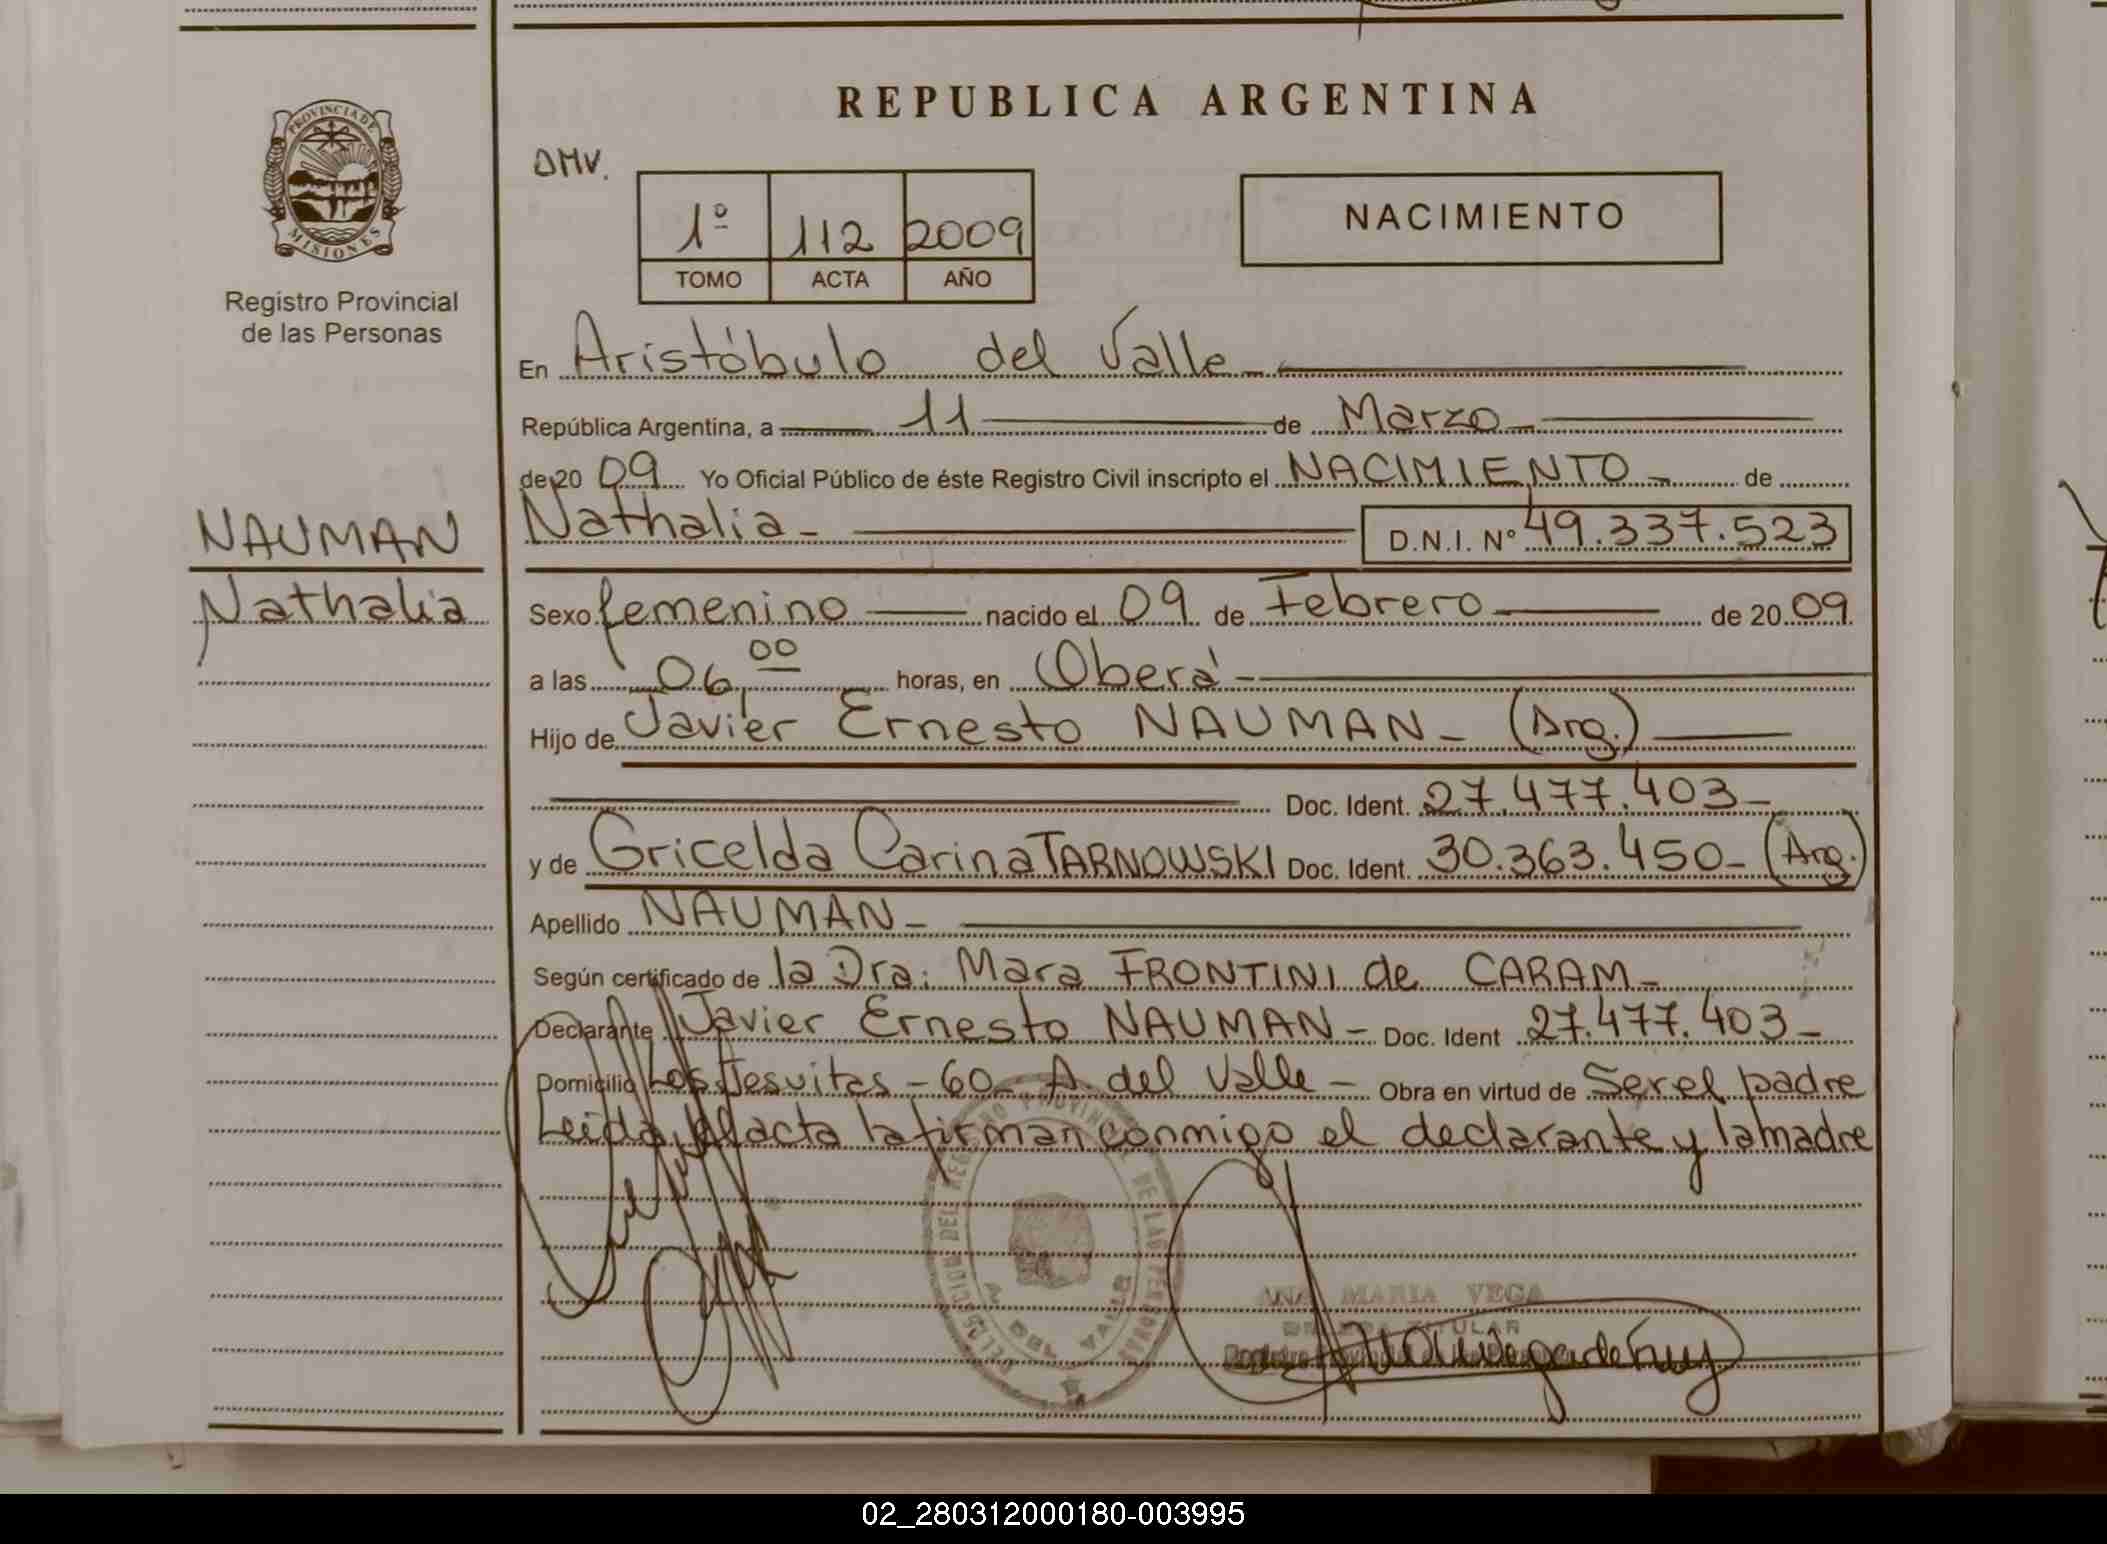 REPUBLICA ARGENTINA
PROVINCIA DE
MISIONES
Registro Provincial
de las Personas
DMV.
1º 112 2009
TOMO ACTA AÑO
NACIMIENTO
En Aristóbulo del Valle
República Argentina, a 11 de Marzo
de 20 09 Yo Oficial Público de éste Registro Civil inscripto el NACIMIENTO de
NAUMAN
Nathalia
Nathalia D.N.I. Nº 49.337.523
Sexo femenino nacido el 09 de Febrero de 20 09
a las 06,00 horas, en Oberá
Hijo de Javier Ernesto NAUMAN (Arg.)
Doc. Ident. 27.477.403
y de Gricelda Carina TARNOWSKI Doc. Ident. 30.363.450 (Arg.)
Apellido NAUMAN
Según certificado de la Dra. Mara FRONTINI de CARAM
Declarante Javier Ernesto NAUMAN Doc. Ident 27.477.403
Domicilio Los Jesuitas - 60 A. del Valle Obra en virtud de Ser el padre
Leida el acta la firman conmigo el declarante y la madre
DELEGACION DEL REGISTRO PROVINCIAL DE LAS PERSONAS
A. DEL VALLE
ANA MARIA VEGA
TITULAR
02_280312000180-003995